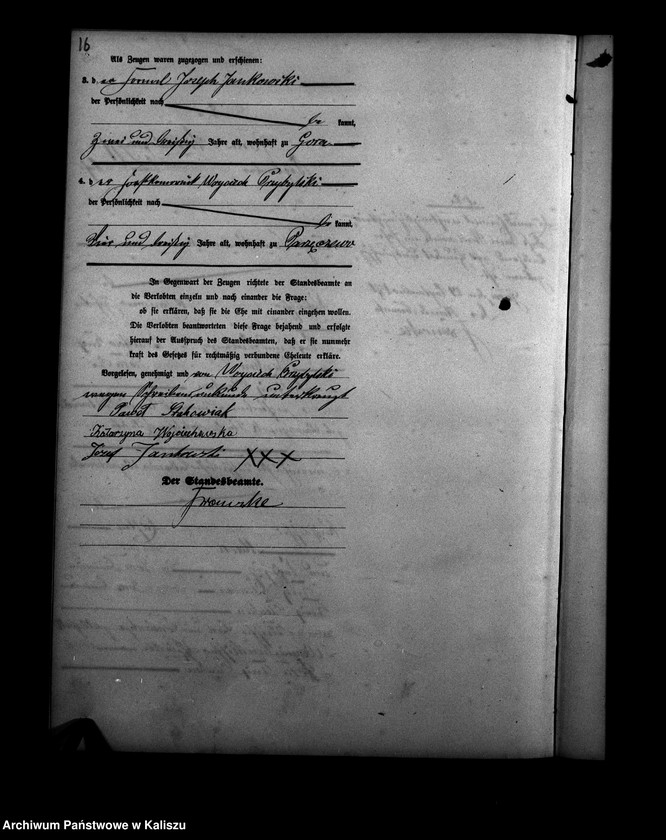 16
Als Zeugen waren zugezogen und erschienen:
3. d er Joseph Jankowski
der Persönlichkeit nach
be kannt,
Zwei und dreißig Jahre alt, wohnhaft zu Gora
4. d er Woyciech Przybylski
der Persönlichkeit nach
be kannt,
Vier und dreißig Jahre alt, wohnhaft zu Parzczewo
In Gegenwart der Zeugen richtete der Standesbeamte an
die Verlobten einzeln und nach einander die Frage:
ob sie erklären, daß sie die Ehe mit einander eingehen wollen.
Die Verlobten beantworteten diese Frage bejahend und erfolgte
hierauf der Ausspruch des Standesbeamten, daß er sie nunmehr
kraft des Gesetzes für rechtmäßig verbundene Eheleute erkläre.
Vorgelesen, genehmigt und von Woyciech Przybylski
wegen Schreibensunkunde unterkreuzt
Paweł Stachowiak
Katarzyna Wojciechowska
Józef Jankowski XXX
Der Standesbeamte.
Archiwum Państwowe w Kaliszu